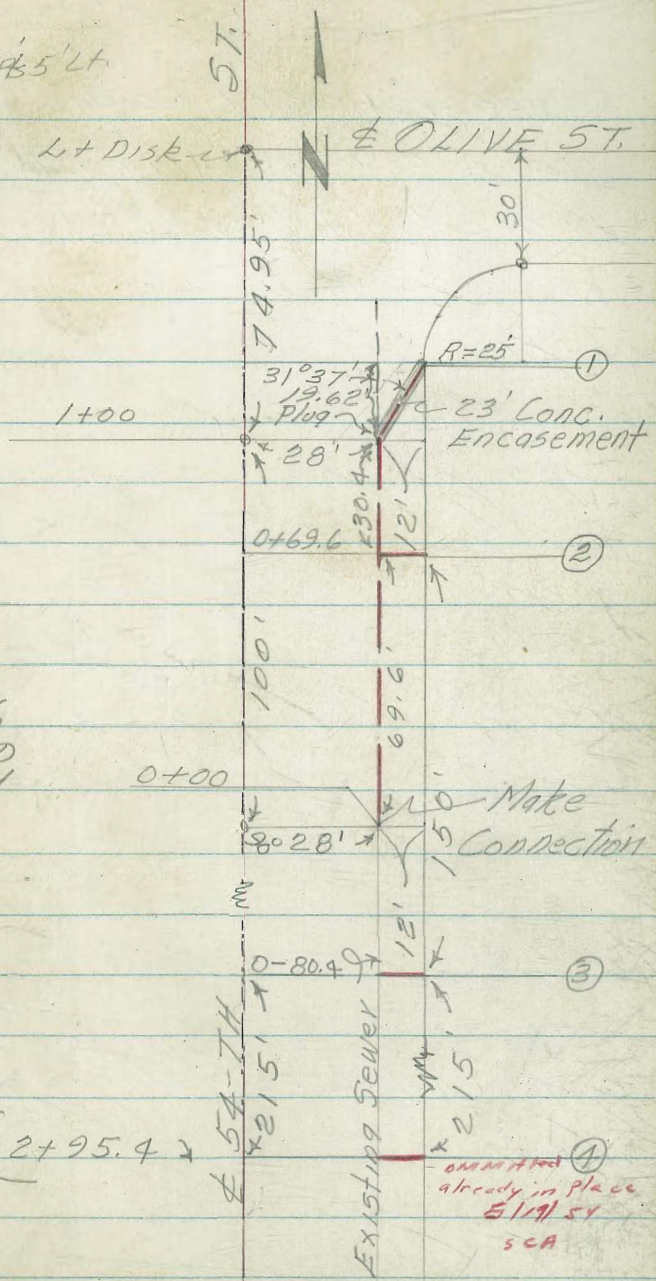 ST.
L+ Disk
N
℄ OLIVE ST.
30'
74.95'
R=25'
①
31°37'
19.62'
Plug
23' Conc.
Encasement
1+00
28'
30.4
12'
0+69.6
②
100'
69.6'
0+00
Make
Connection
28'
150'
12'
0-80.4
③
℄ 54-TH
215'
Existing Sewer
215'
2+95.4
④
ommitted
already in place
5/19/54
SCA